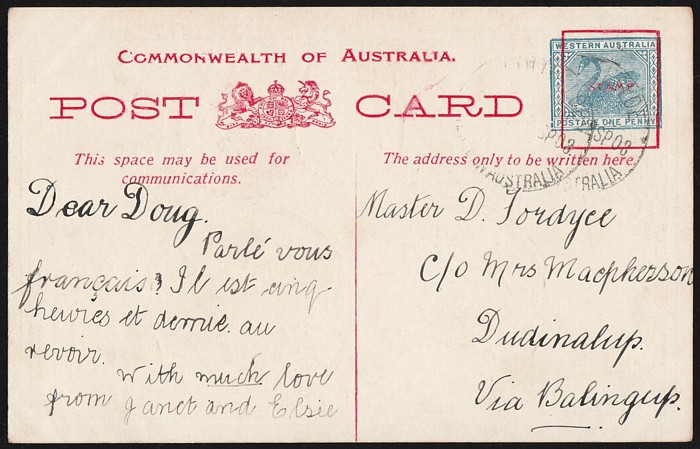 COMMONWEALTH OF AUSTRALIA.
POST CARD
WESTERN AUSTRALIA
STAMP
POSTAGE ONE PENNY
SP 08
SP 08
N AUSTRALIA
TRALIA
This space may be used for
communications.
Dear Doug.
Parlé vous
français? Il est cinq
heures et demie. au
revoir.
With much love
from Janet and Elsie
The address only to be written here.
Master D. Fordyce
C/o Mrs Macpherson
Dudinalup.
Via Balingup.